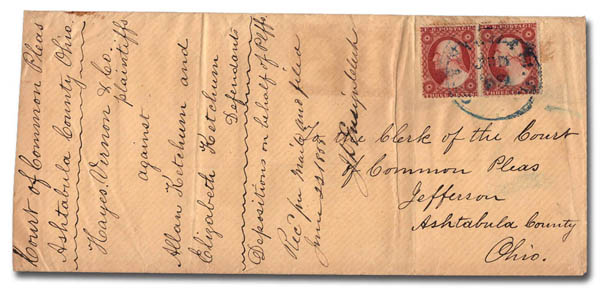 Court of Common Pleas
Ashtabula County Ohio
Hayes, Vernon & Co.
plaintiffs
against
Allan Ketchum and
Elizabeth Ketchum
Defendants
Depositions on behalf of Plffs
Rec'd per Mail and filed
June 22 1858
Clerk
The Clerk of the Court
of Common Pleas
Jefferson
Ashtabula County
Ohio.
U.S. POSTAGE
THREE CENTS
U.S. POSTAGE
THREE CENTS